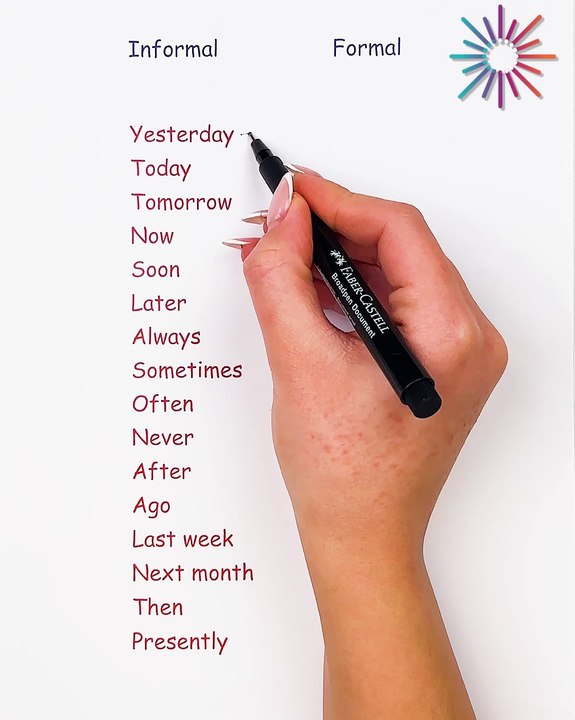 Informal Formal
Yesterday
Today
Tomorrow
Now
Soon
Later
Always
Sometimes
Often
Never
After
Ago
Last week
Next month
Then
Presently
FABER-CASTELL
Broadpen Document